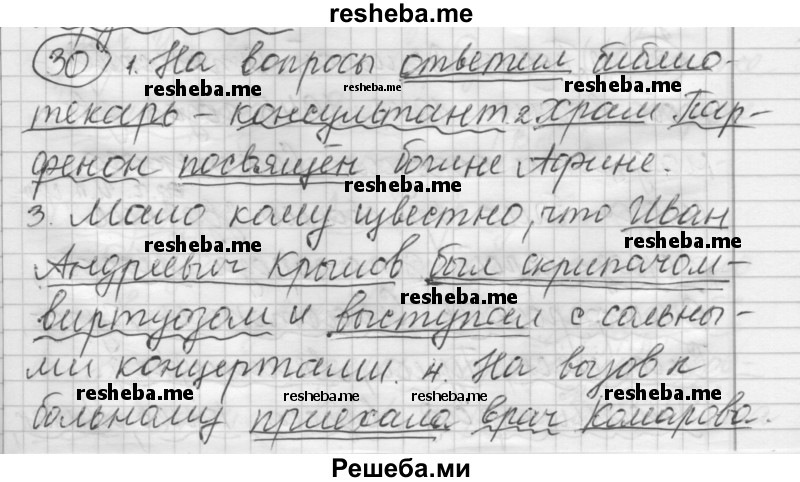 resheba.me
30 1. На вопросы ответил библио-
resheba.me resheba.me resheba.me
текарь - консультант 2. Храм Пар-
фенон посвящён богине Афине.
resheba.me
3. Мало кому известно, что Иван
resheba.me resheba.me
Андреевич Крылов был скрипачом-
resheba.me
виртуозом и выступал с сольны-
ми концертами. 4. На вызов к
resheba.me resheba.me resheba.me
больному приехала врач Комарова.
Решеба.ми